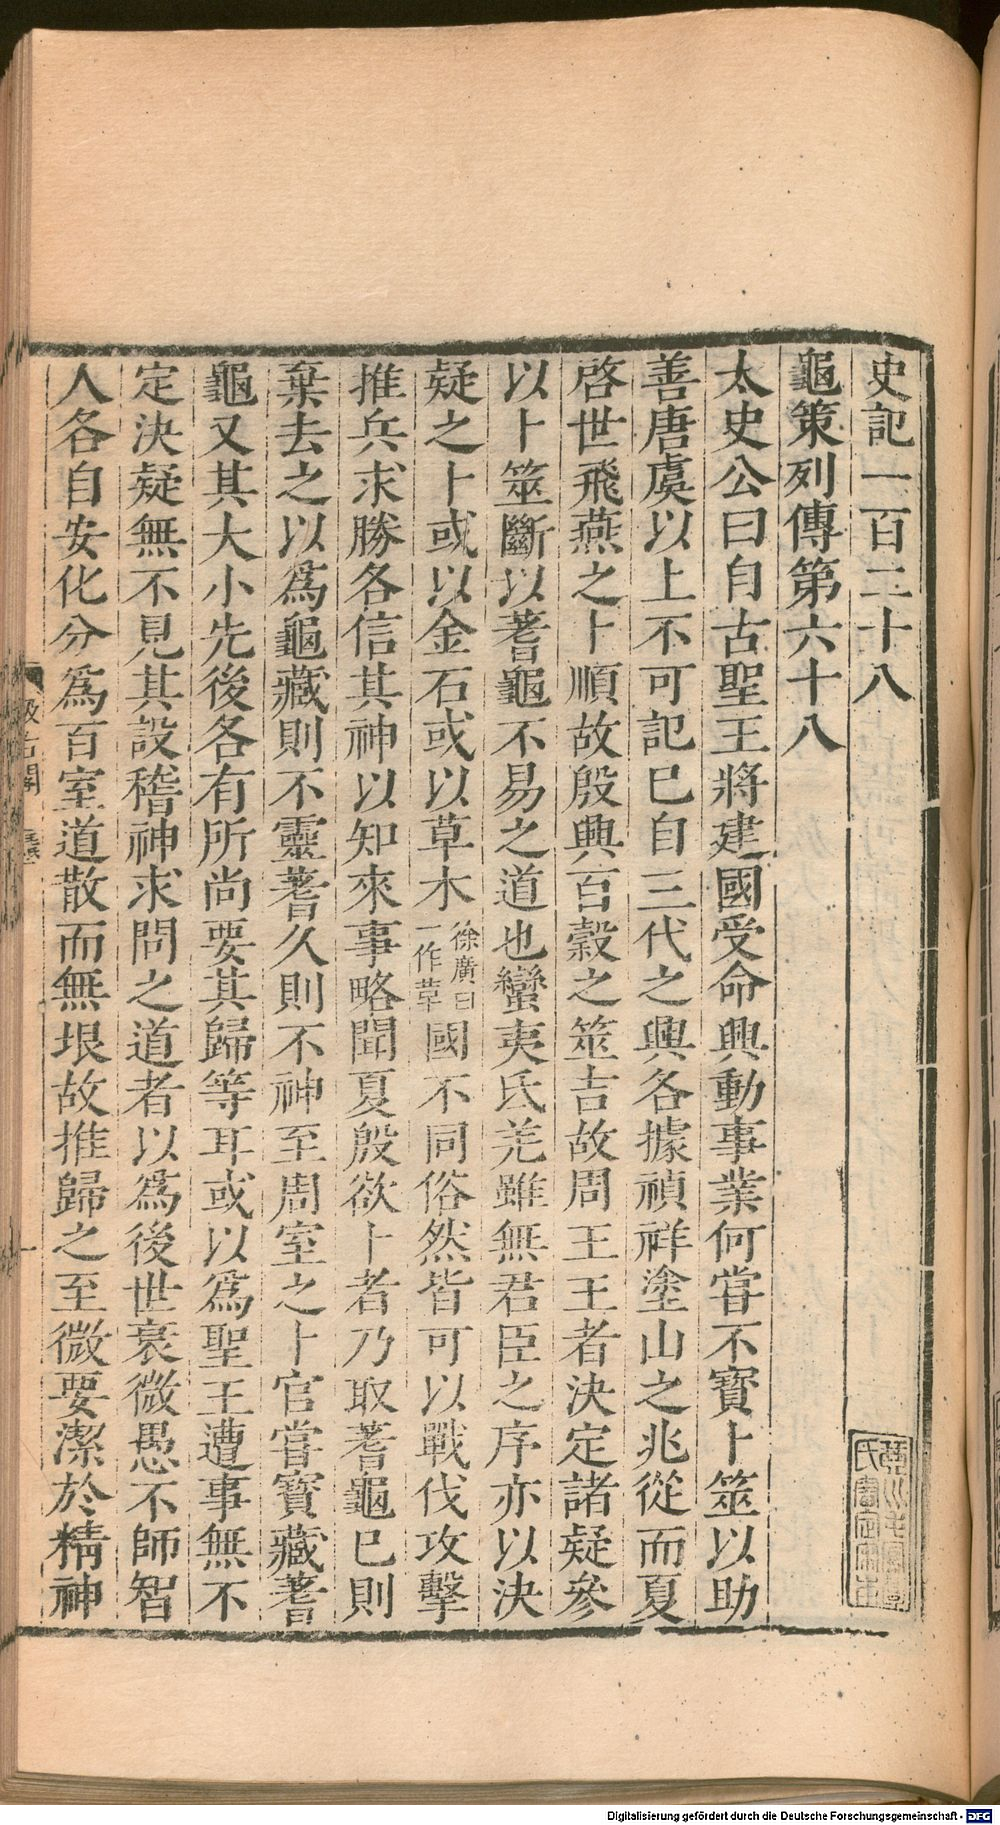 史記一百二十八
龜策列傳第六十八
太史公曰自古聖王將建國受命興動事業何嘗不寶卜筮以助
善唐虞以上不可記已自三代之興各據禎祥塗山之兆從而夏
啓世飛燕之卜順故殷興百穀之筮吉故周王王者決定諸疑參
以卜筮斷以蓍龜不易之道也蠻夷氐羌雖無君臣之序亦以決
疑之卜或以金石或以草木徐廣曰一作革國不同俗然皆可以戰伐攻擊
推兵求勝各信其神以知來事略聞夏殷欲卜者乃取蓍龜已則
棄去之以爲龜藏則不靈蓍久則不神至周室之卜官嘗寶藏蓍
龜又其大小先後各有所尚要其歸等耳或以爲聖王遭事無不
定決疑無不見其設稽神求問之道者以爲後世衰微愚不師智
人各自安化分爲百室道散而無垠故推歸之至微要潔於精神
Digitalisierung gefördert durch die Deutsche Forschungsgemeinschaft - DFG